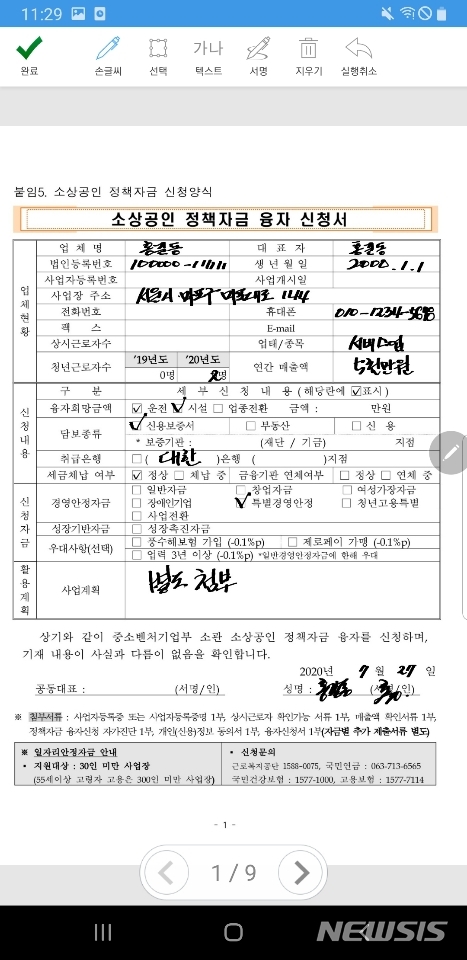 11:29
완료
손글씨
선택
가나
텍스트
서명
지우기
실행취소
붙임5. 소상공인 정책자금 신청양식
소상공인 정책자금 융자 신청서
업체현황
업 체 명 홍길동 대 표 자 홍길동
법인등록번호 100000-11111 생 년 월 일 2000.1.1
사업자등록번호 사업개시일
사업장 주소 서울시 마포구 마포대로 144
전화번호 휴대폰 010-1234-5678
팩 스 E-mail
상시근로자수 업태/종목 서비스업
청년근로자수 '19년도 '20년도 연간 매출액 5천만원
0명 명
신청내용
구 분 세 부 신 청 내 용 (해당란에 ☑표시)
융자희망금액 ☑ 운전 ☑ 시설 □ 업종전환 금액 : 만원
담보종류 ☑ 신용보증서 □ 부동산 □ 신 용
* 보증기관 : (재단 / 기금) 지점
취급은행 □ ( 대한 )은행 ( )지점
세금체납 여부 ☑ 정상 □ 체납 중 금융기관 연체여부 □ 정상 □ 연체 중
신청자금
경영안정자금 □ 일반자금 □ 창업자금 □ 여성가장자금
□ 장애인기업 ☑ 특별경영안정 □ 청년고용특별
□ 사업전환
성장기반자금 □ 성장촉진자금
우대사항(선택) □ 풍수해보험 가입 (-0.1%p) □ 제로페이 가맹 (-0.1%p)
□ 업력 3년 이상 (-0.1%p) *일반경영안정자금에 한해 우대
활용계획
사업계획 별도 첨부
상기와 같이 중소벤처기업부 소관 소상공인 정책자금 융자를 신청하며,
기재 내용이 사실과 다름이 없음을 확인합니다.
2020년 7 월 27 일
공동대표 : (서명/인) 성명 : 홍길동 (서명/인)
※ 첨부서류 : 사업자등록증 또는 사업자등록증명 1부, 상시근로자 확인가능 서류 1부, 매출액 확인서류 1부,
정책자금 융자신청 자가진단 1부, 개인(신용)정보 동의서 1부, 융자신청서 1부(자금별 추가 제출서류 별도)
※ 일자리안정자금 안내
• 지원대상 : 30인 미만 사업장
(55세이상 고령자 고용은 300인 미만 사업장)
• 신청문의
근로복지공단 1588-0075, 국민연금 : 063-713-6565
국민건강보험 : 1577-1000, 고용보험 : 1577-7114
- 1 -
1 / 9
NEWSIS